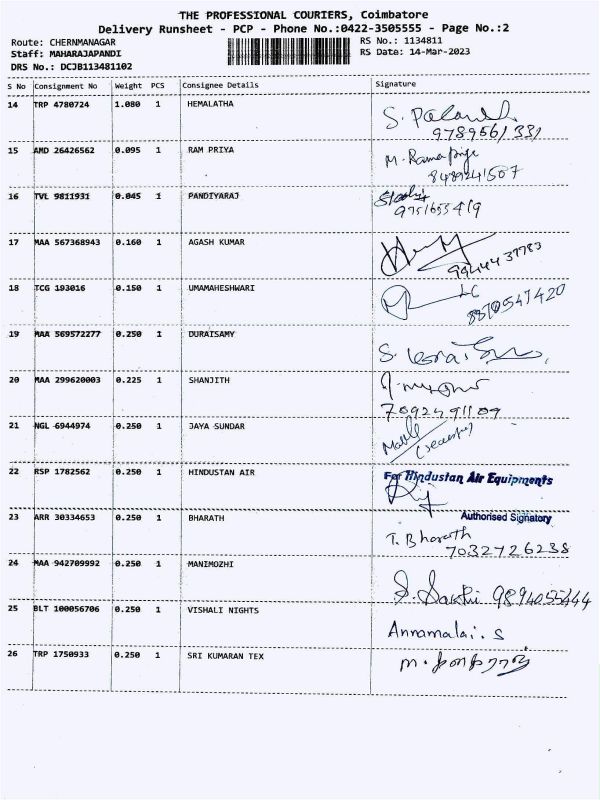 THE PROFESSIONAL COURIERS, Coimbatore
Delivery Runsheet - PCP - Phone No.:0422-3505555 - Page No.:2
Route: CHERNMANAGAR
Staff: MAHARAJAPANDI
DRS No.: DCJB113481102
RS No.: 1134811
RS Date: 14-Mar-2023
S No Consignment No Weight PCS Consignee Details Signature
14 TRP 4780724 1.080 1 HEMALATHA
9789561331
15 AMD 26426562 0.095 1 RAM PRIYA M. Rama priya
8489241507
16 TVL 9811931 0.045 1 PANDIYARAJ
9751655419
17 MAA 567368943 0.160 1 AGASH KUMAR
9944437783
18 TCG 193016 0.150 1 UMAMAHESHWARI
8870547420
19 MAA 569572277 0.250 1 DURAISAMY
20 MAA 299620003 0.225 1 SHANJITH
7092491109
21 NGL 6944974 0.250 1 JAYA SUNDAR
(security)
22 RSP 1782562 0.250 1 HINDUSTAN AIR For Hindustan Air Equipments
Authorised Signatory
23 ARR 30334653 0.250 1 BHARATH
T. Bharath
7032726238
24 MAA 942709992 0.250 1 MANIMOZHI
S. Sakthi 9894055444
25 BLT 100056706 0.250 1 VISHALI NIGHTS
Annamalai. S
26 TRP 1750933 0.250 1 SRI KUMARAN TEX